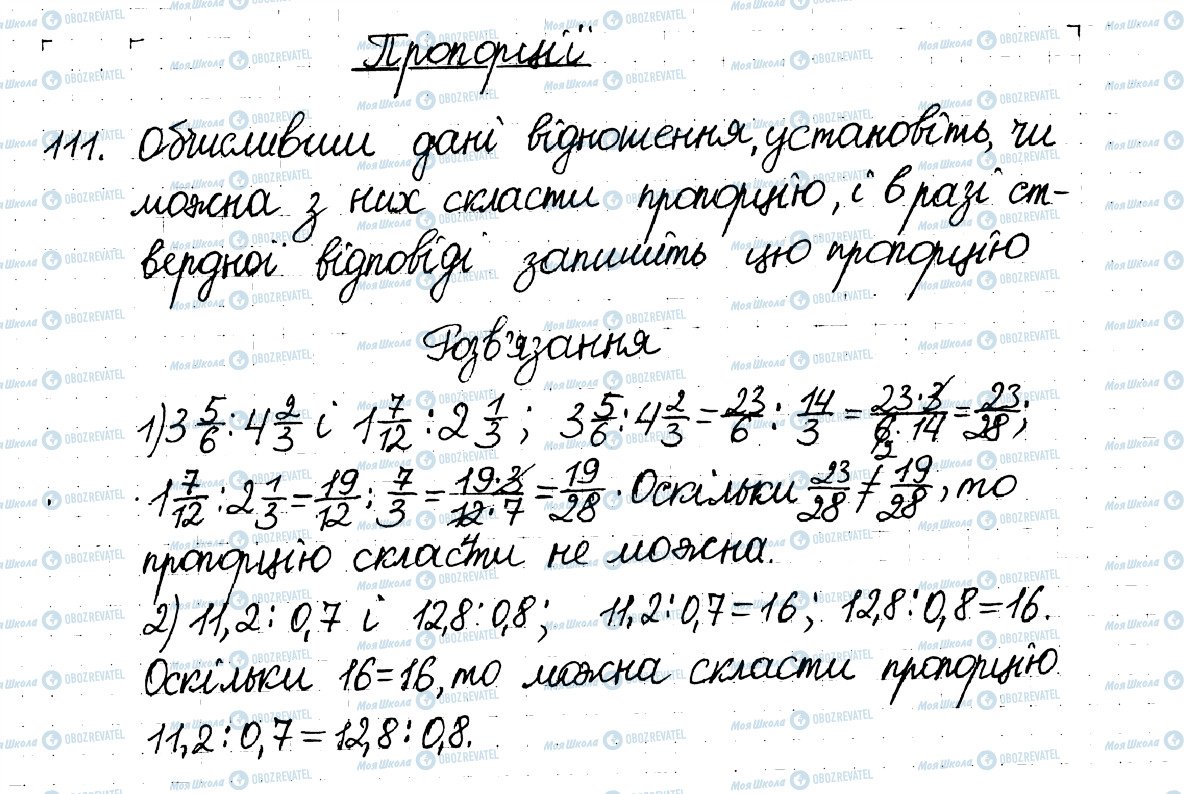 Пропорції
111. Обчисливши дані відношення, установіть, чи
можна з них скласти пропорцію, і в разі ст-
вердної відповіді запишіть цю пропорцію
Розв'язання
1) 3 5/6 : 4 2/3 і 1 7/12 : 2 1/3 ; 3 5/6 : 4 2/3 = 23/6 : 14/3 = 23·3/6·14 = 23/28 ;
1 7/12 : 2 1/3 = 19/12 : 7/3 = 19·3/12·7 = 19/28 . Оскільки 23/28 ≠ 19/28 , то
пропорцію скласти не можна.
2) 11,2 : 0,7 і 12,8 : 0,8 ; 11,2 : 0,7 = 16 ; 12,8 : 0,8 = 16.
Оскільки 16 = 16, то можна скласти пропорцію
11,2 : 0,7 = 12,8 : 0,8.
МояШкола OBOZREVATEL